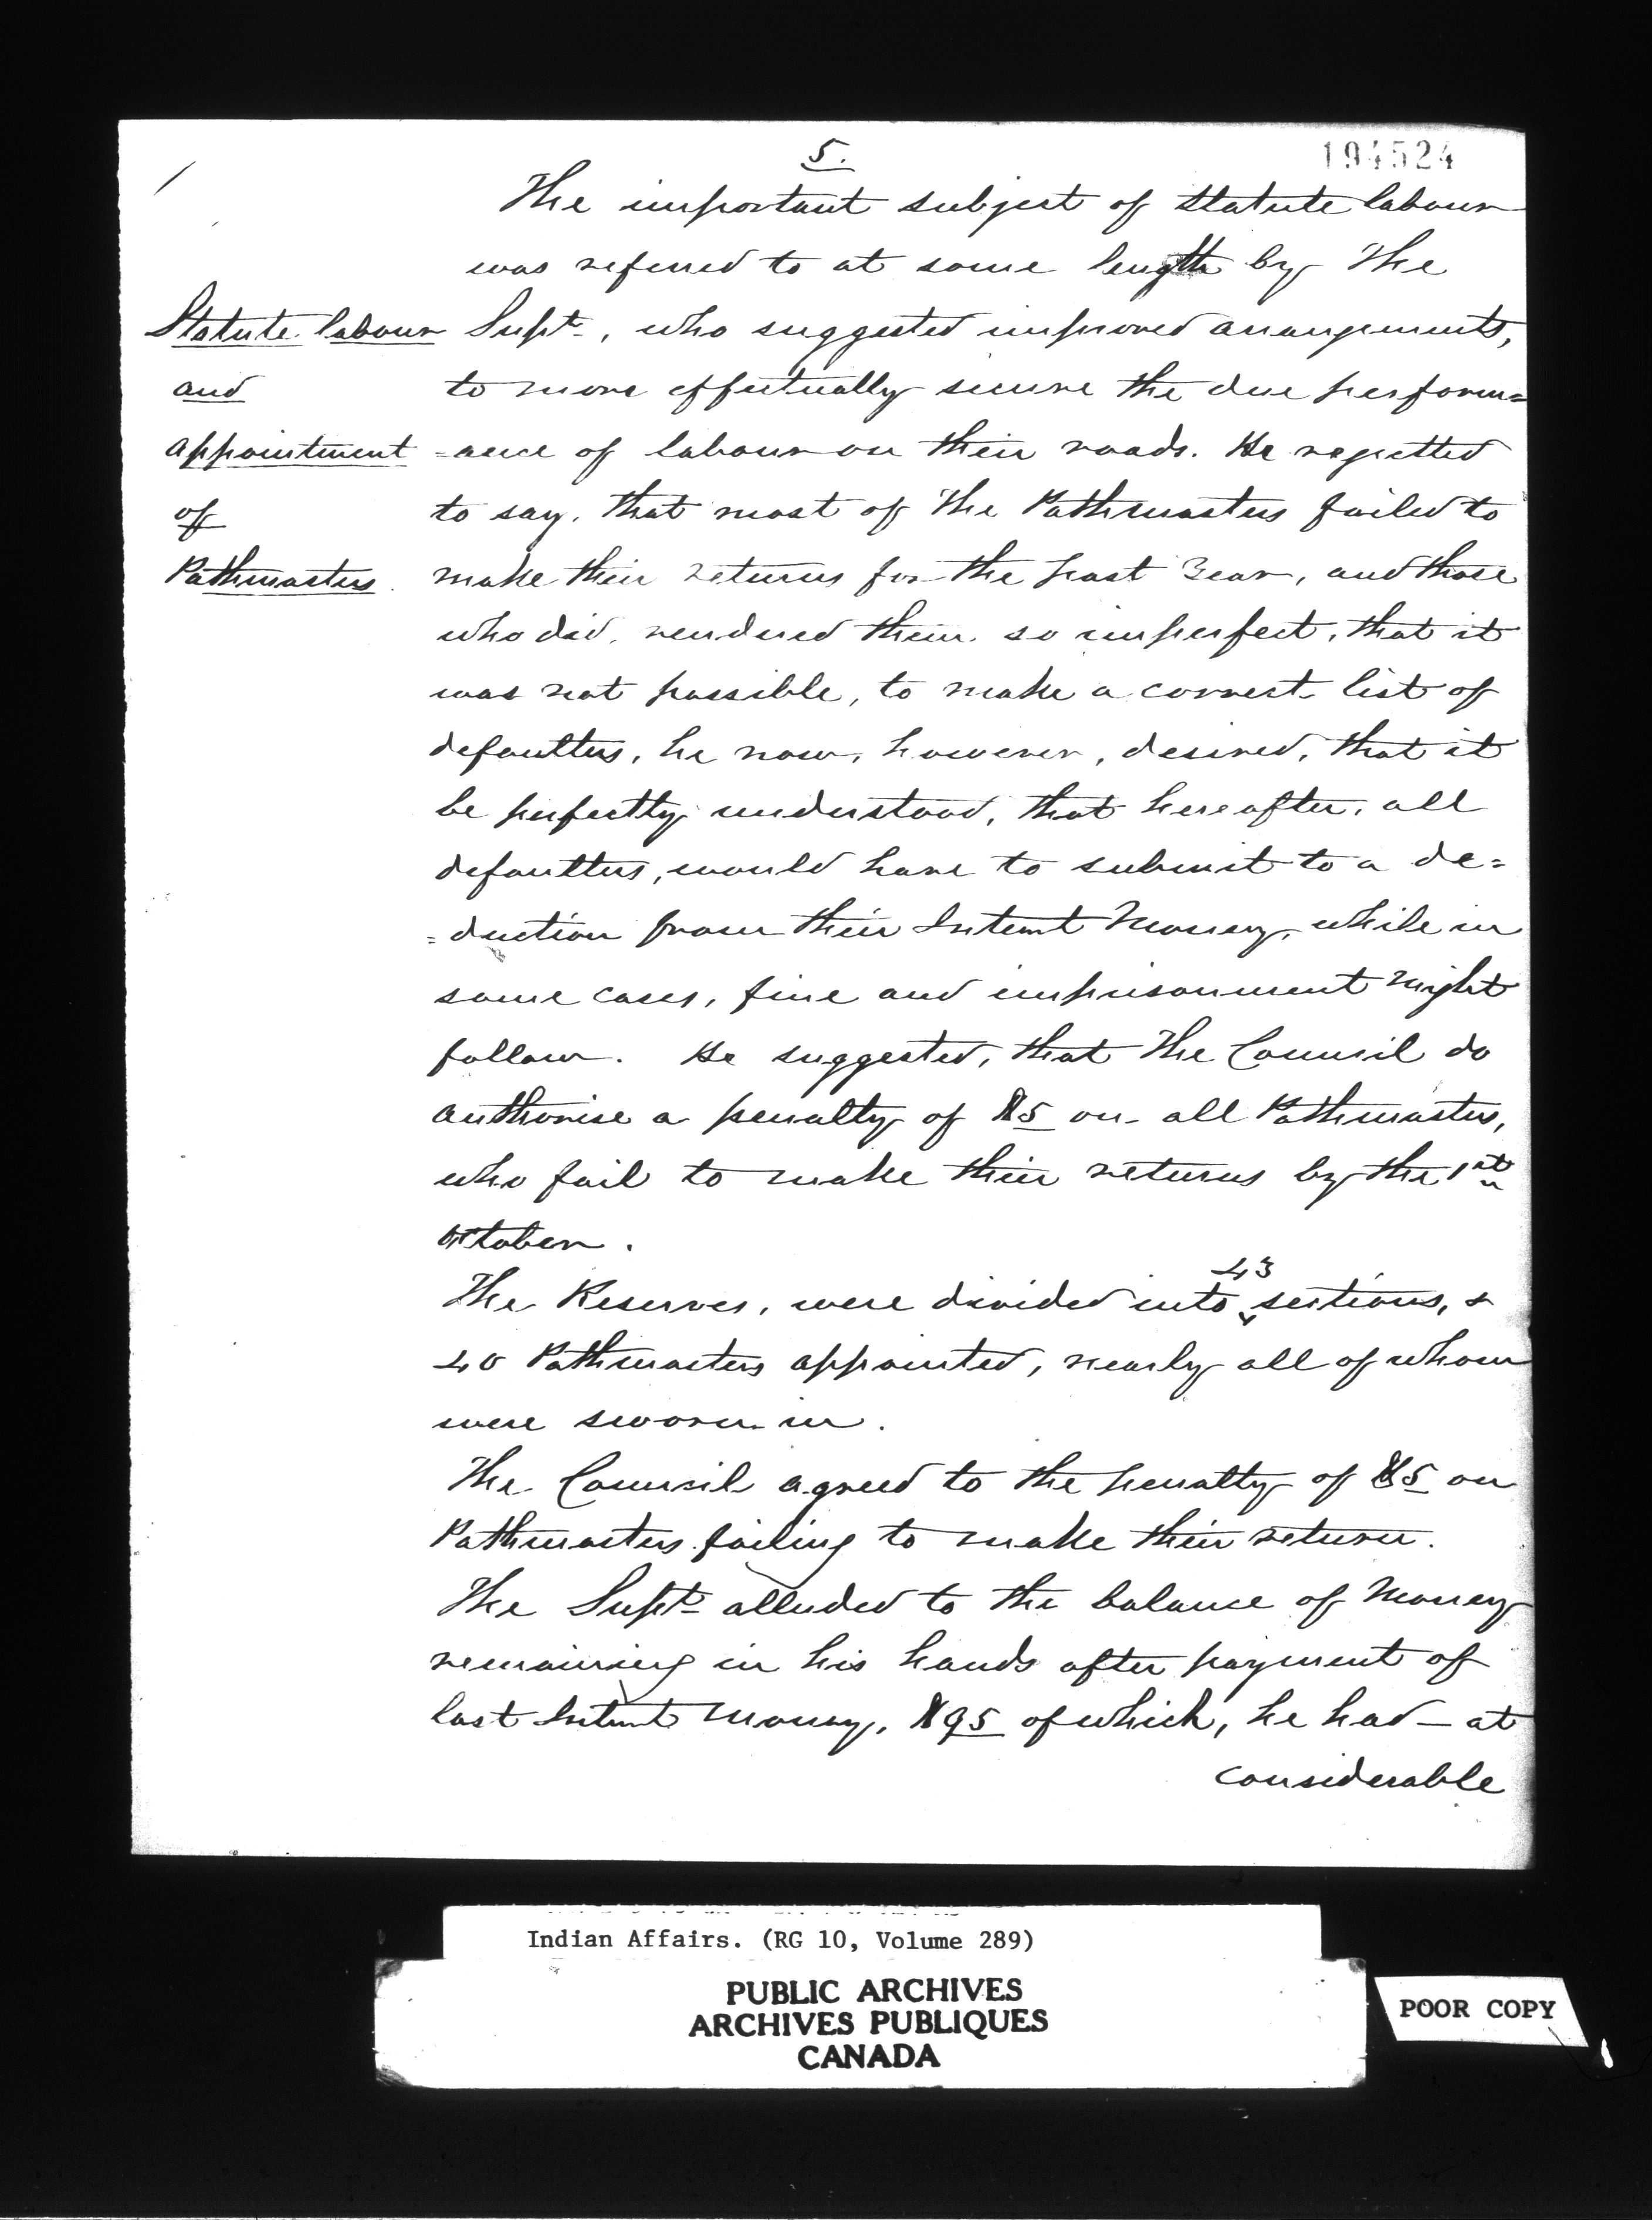 5.
194524
The important subject of statute labour
was referred to at some length by The
Statute labour
and
appointment
of
Pathmasters.
Supt., who suggested improved arrangements,
to more effectually secure the due perform=
=ance of labour on their roads. He regretted
to say, that most of The Pathmasters failed to
make their returns for the past Year, and those
who did, rendered them so imperfect, that it
was not possible, to make a correct list of
defaulters, he now, however, desired, that it
be perfectly understood, that hereafter, all
defaulters, would have to submit to a de=
=duction from their Interest Money, while in
some cases, fine and imprisonment might
follow. He suggested, that The Council do
authorise a penalty of $5 on all Pathmasters,
who fail to make their returns by the 1st
October.
The Reserves, were divided into 43 sections, &
40 Pathmasters appointed, nearly all of whom
were sworn in.
The Council agreed to the penalty of $5 on
Pathmasters failing to make their return.
The Supt. alluded to the balance of Money
remaining in his hands after payment of
last Interest Money, $95 of which, he had — at
considerable
Indian Affairs. (RG 10, Volume 289)
PUBLIC ARCHIVES
ARCHIVES PUBLIQUES
CANADA
POOR COPY